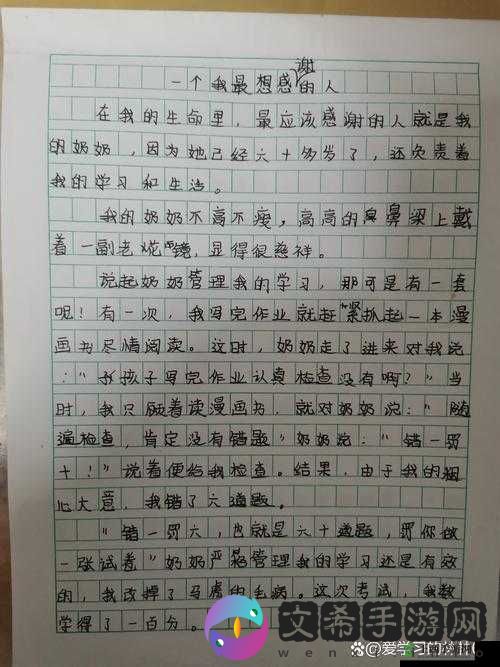 谢
一个我最想感的人
在我的生命里，最应该感谢的人就是我
的奶奶，因为她已经六十多岁了，还负责着
我的学习和生活。
我的奶奶不高不瘦，高高的鼻梁上戴
着一副老花眼镜，显得很慈祥。
说起奶奶管理我的学习，那可是有一套
呢！有一次，我写完作业就赶紧抓起一本漫
画书尽情阅读。这时，奶奶走了进来对我说
：“孩子写完作业认真检查没有啊？”当
时，我只顾着读漫画书，就对奶奶说：“随
遍检查，肯定没有错题”奶奶说：“错一罚
十！”说着便给我检查。结果，由于我的粗
心大意，我错了六道题。
“错一罚六，也就是六十道题，罚你做
一张试卷”奶奶严格管理我的学习还是有效
的，我改掉了马虎的毛病。这次考试，我数
学得了一百分。
文希手游网
@爱学习的